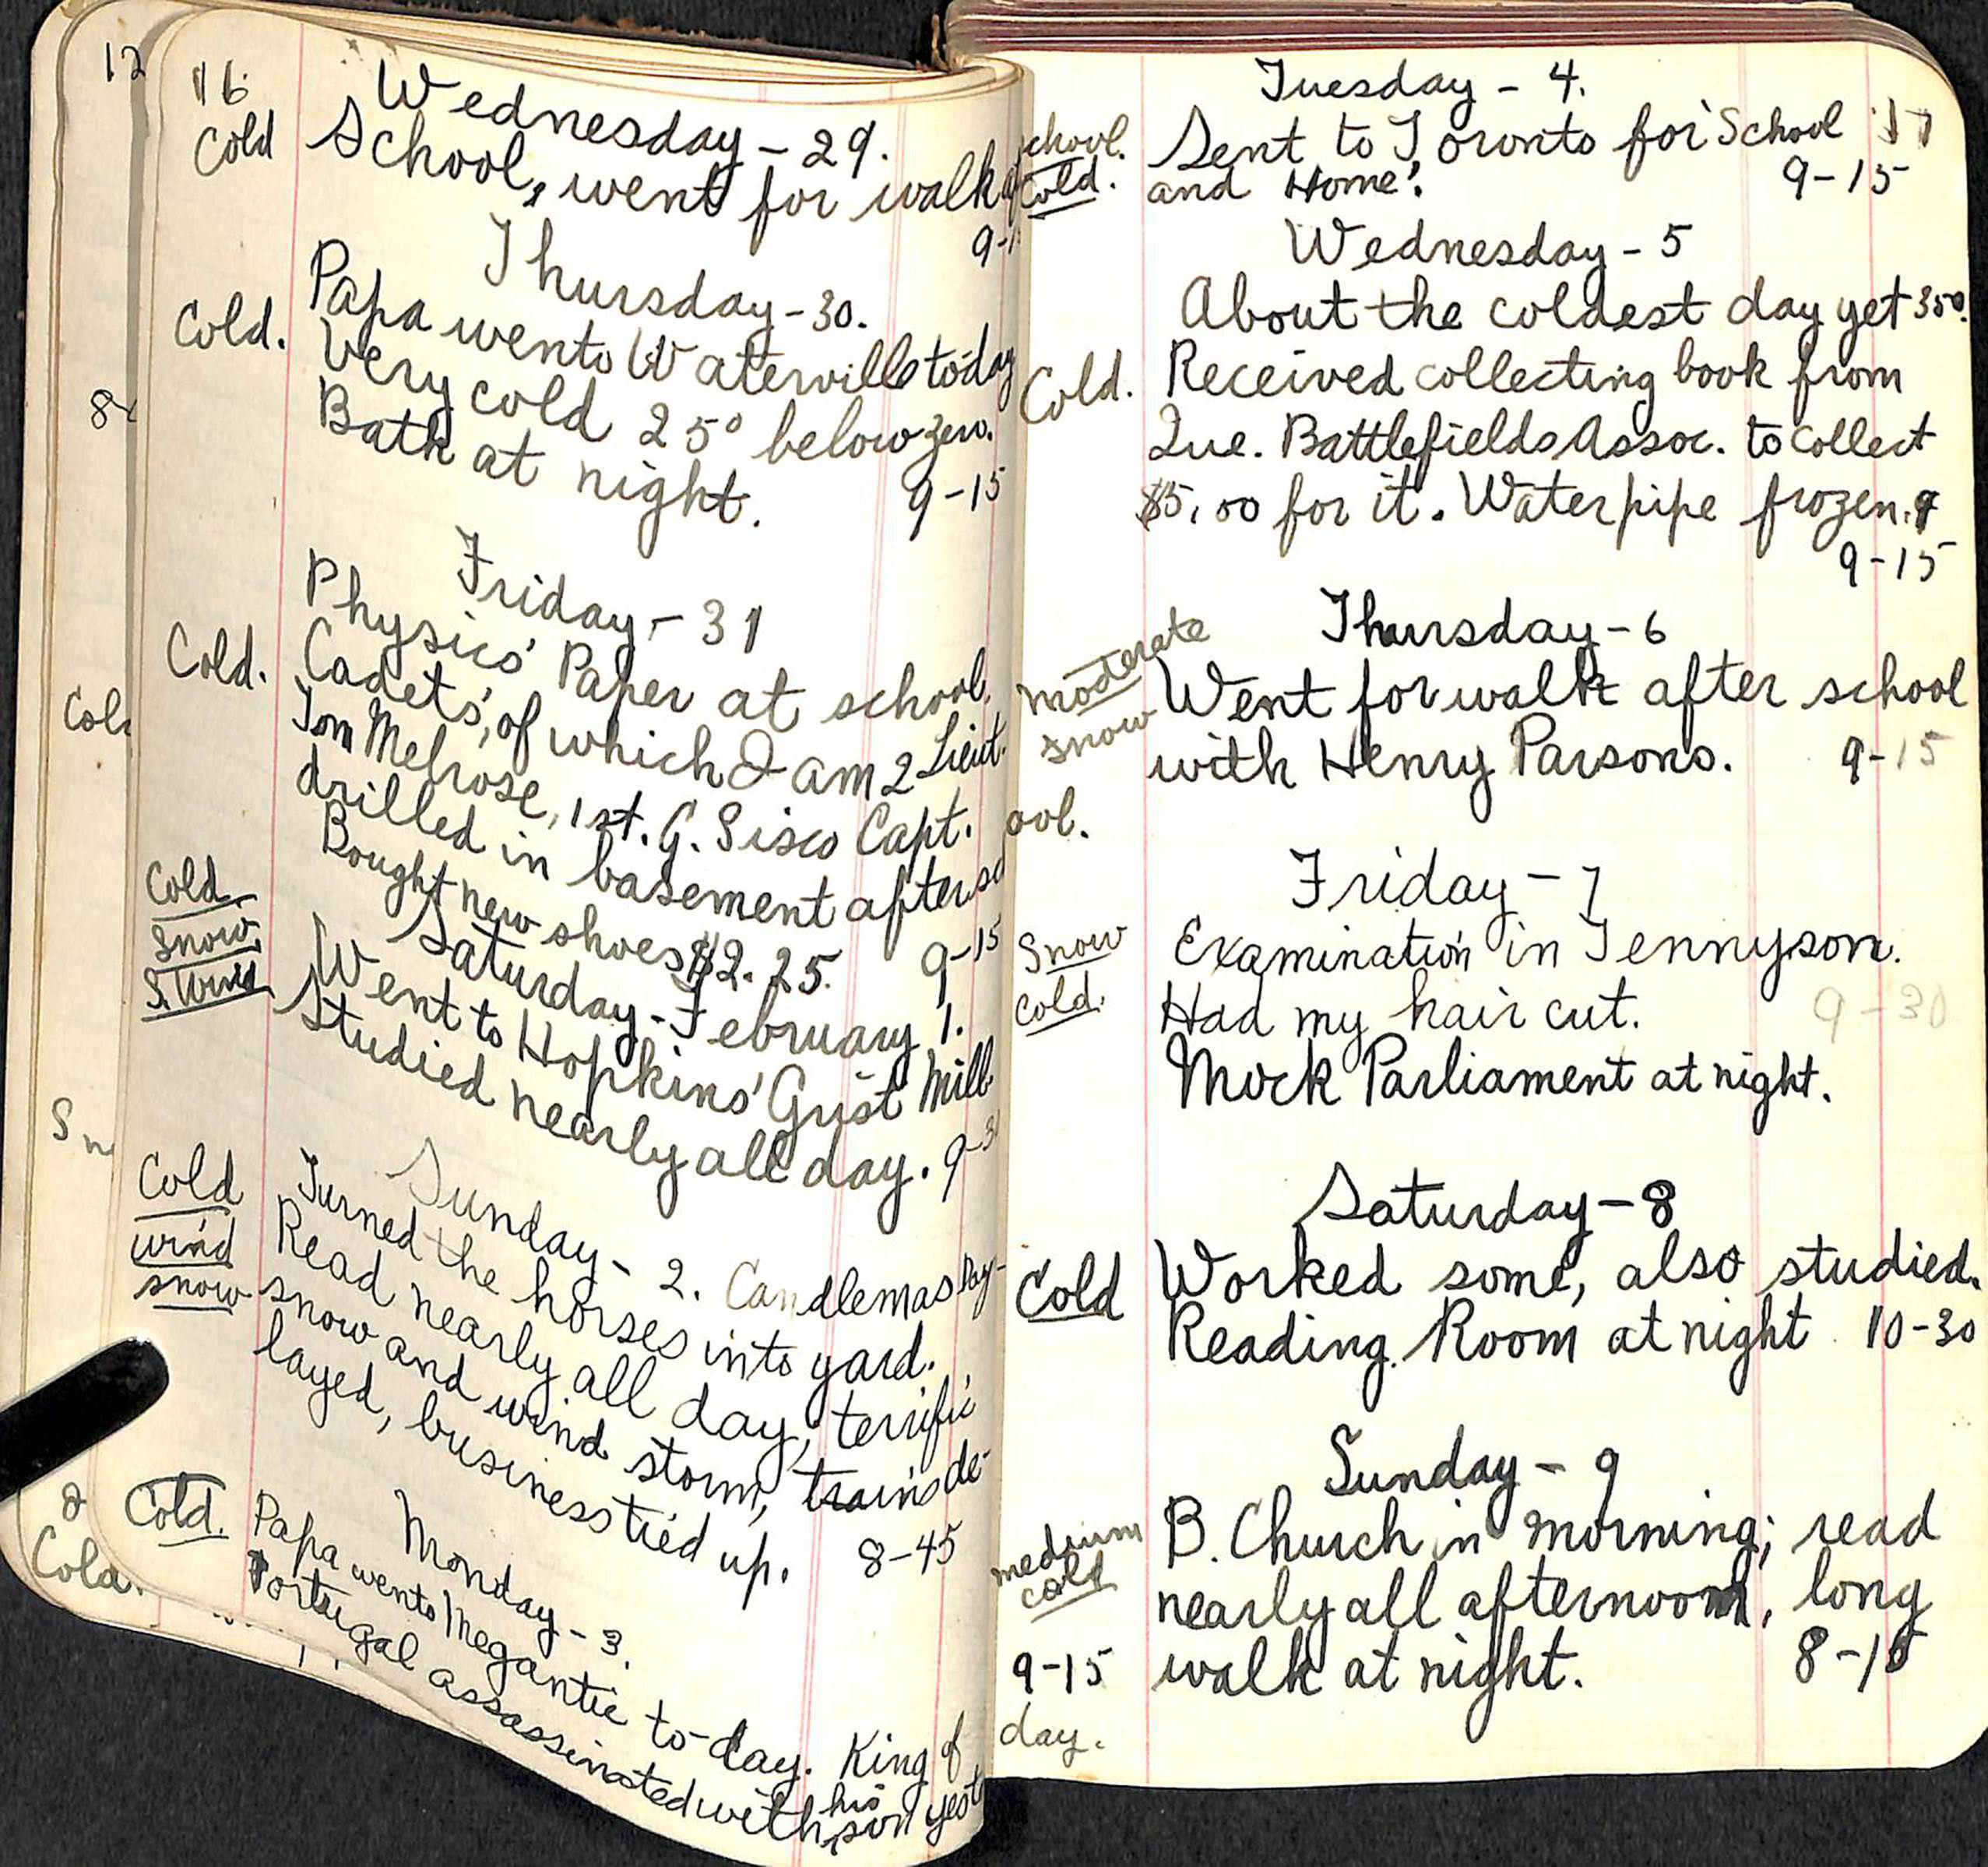 12
8
Col
Sn
2
Cold.
16
Wednesday - 29.
Cold
School, went for walk
9-1
Thursday - 30.
Cold.
Papa wento Waterville today
Very cold 25° below zero.
Bath at night. 9-15
Friday - 31
Cold.
Physics' Paper at school.
Cadets', of which I am 2 Lieut.
Tom Melrose, 1st. G. Sisco Capt.
drilled in basement after sc
Bought new shoes $2.25. 9-15
Saturday - February 1.
Cold.
Snow.
S. Wind
Went to Hopkins' Grist Mill.
Studied nearly all day. 9-3
Sunday - 2. Candlemas Day-
Cold
wind
snow
Turned the horses into yard.
Read nearly all day, terrific
snow and wind storm, trains de-
layed, business tied up. 8-45
Monday - 3.
Cold.
Papa wento Megantic to-day. King of
Portugal assassinated with his son yest
school.
Cold.
ool.
9-15
day.
Tuesday - 4.
17
Sent to Toronto for School
and Home'. 9-15
Wednesday - 5
About the coldest day yet 35°.
Cold.
Received collecting book from
Que. Battlefields Assoc. to collect
$5.00 for it. Waterpipe frozen.
9-15
Thursday - 6
moderate
snow
Went for walk after school
with Henry Parsons. 9-15
Friday - 7
Snow
Cold.
Examination in Tennyson.
Had my hair cut. 9-30
Mock Parliament at night.
Saturday - 8
Cold
Worked some, also studied.
Reading Room at night. 10-30
Sunday - 9
medium
cold
B. Church in morning; read
nearly all afternoon, long
walk at night. 8-15